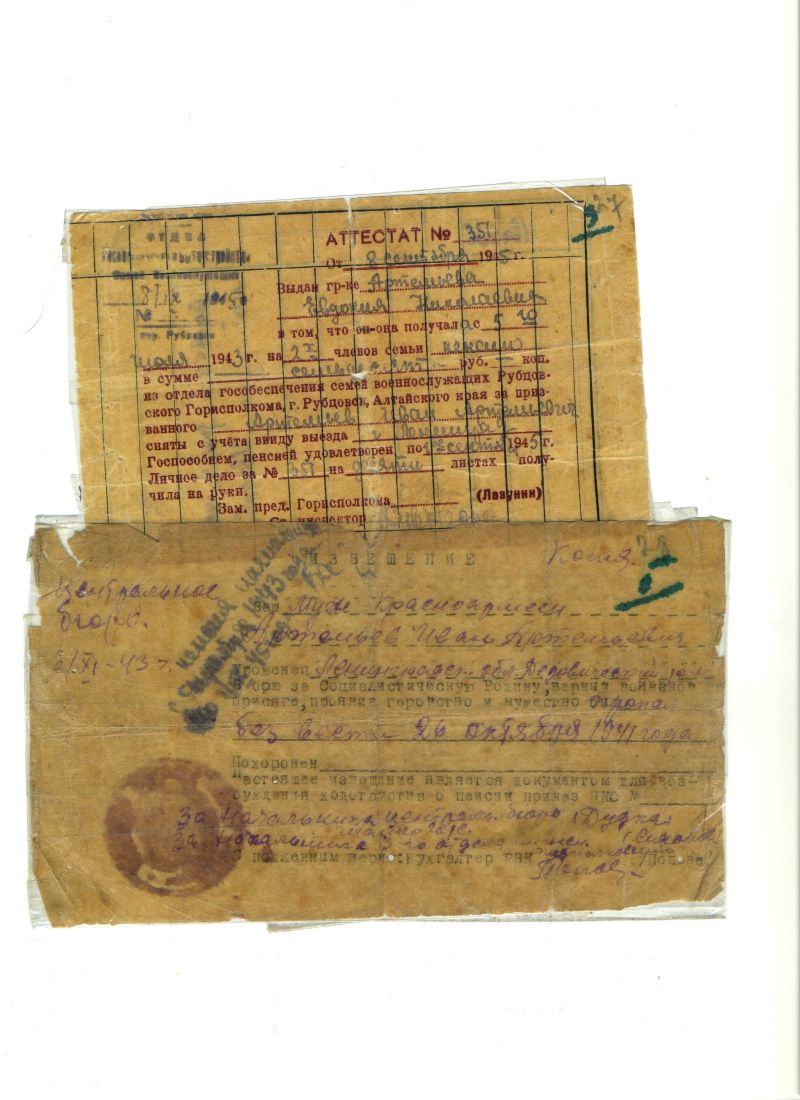 27
ОТДЕЛ
8/IX 1945
№
гор. Рубцовск
АТТЕСТАТ № 351
От 8 сентября 1945 г.
Выдан гр-ке Артемьева
Евдокия Николаевна
в том, что он-она получала с 5 го
июля 1943 г. на 2х членов семьи пенсию
в сумме семьдесят руб. — коп.
из отдела гособеспечения семей военнослужащих Рубцов-
ского Горисполкома, г. Рубцовск, Алтайского края за приз-
ванного Артемьев Иван Артемьевич
сняты с учёта ввиду выезда г.
Госпособием, пенсией удовлетворен по 1945 г.
Личное дело за № 351 на листах полу-
чила на руки.
Зам. пред. Горисполкома (Лазунин)
Ст. инспектор
ИЗВЕЩЕНИЕ Копия 28
Центральное
бюро.
6/XI-43 г.
Ваш Муж Красноармеец
Артемьев Иван Артемьевич
уроженец Ленинградск обл
в бою за Социалистическую Родину, верный воинской
присяге, проявив геройство и мужество был пропал
без вести 26 октября 1941 года
Похоронен
Настоящее извещение является документом для воз-
буждения ходотайства о пенсии приказ НКО №
За Начальника централь. бюро
За Начальника 3-го отдела
С подлинным верно: Бухгалтер РВК /Попова/